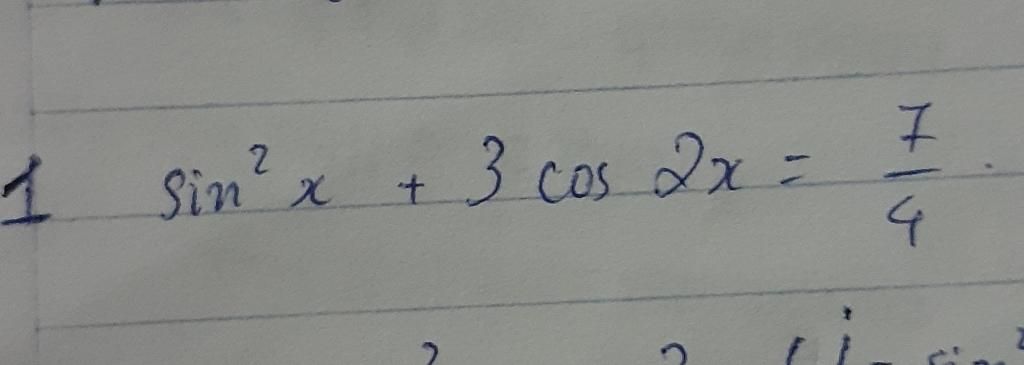 1 sin² x + 3 cos 2x = 7/4.